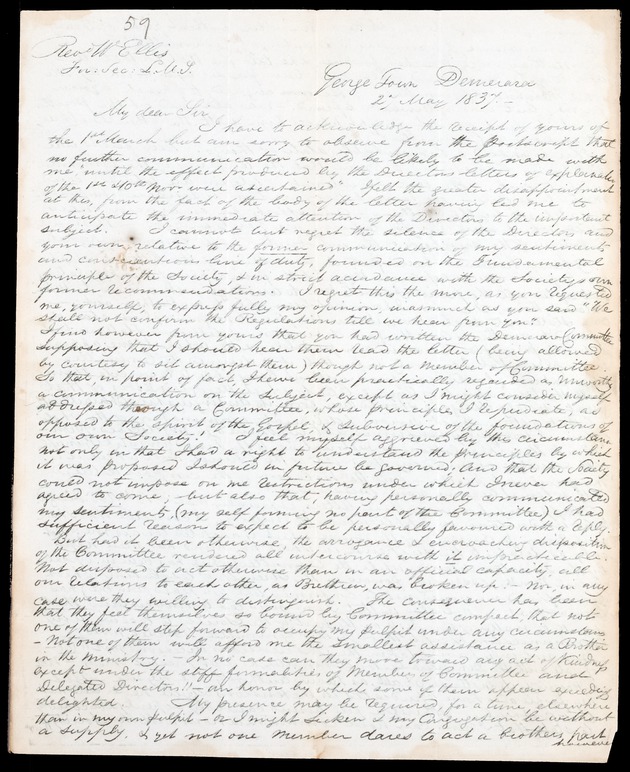 59
Revd Wm Ellis
For: Sec: L.M.S.
George Town Demerara
2d May 1837.-
My dear Sir
I have to acknowledge the receipt of yours of
the 1st March but am sorry to observe from the Postscript that
no further communication would be likely to be made with
me until the effect produced by the Directors letters of explanation
of the 1st & 10th Nov were ascertained. I felt the greater disappointment
at this, from the fact of the body of the letter having led me to
anticipate the immediate attention of the Directors to the important
subject. I cannot but regret the silence of the Directors and
your own, relative to the former communication of my sentiments
and conscientious line of duty, founded on the Fundamental
principle of the Society, & in strict accordance with the Society's own
former recommendations. I regret this the more, as you requested
me, yourself, to express fully my opinion, inasmuch as you said "We
shall not confirm the Regulations till we hear from you."
I find however from yours that you had written the Demerara Committee
supposing that I should hear them read the letter (being allowed
by courtesy to sit amongst them) though not a member of Committee.
So that, in point of fact, I have been practically regarded as unworthy
a communication on the subject, except as I might consider myself
addressed through a Committee, whose principles I repudiate, as
opposed to the spirit of the Gospel, & subversive of the foundations of
our own Society! I feel myself aggrieved by this circumstance
not only in that I had a right to understand the principles by which
it was proposed I should in future be governed; And that the Society
could not impose on me restrictions under which I never had
agreed to come, - but also that, having personally communicated
my sentiments, (my self forming no part of the Committee) I had
sufficient reason to expect to be personally favoured with a reply.
But had it been otherwise, the arrogance & encroaching disposition
of the Committee rendered all intercourse with it impracticable.
Not disposed to act otherwise than in an official capacity, all
our relations to each other, as Brethren, was broken up - Nor, in any
case were they willing to distinguish. The consequence has been
that they feel themselves so bound by Committee compact, that not
one of them will step forward to occupy my pulpit under any circumstance
- Not one of them will afford me the smallest assistance as a Brother
in the Ministry. In no case can they move toward any act of Kindness
except under the stiff formalities of Members of Committee and
Delegated Directors!! - an honor by which some of them appear exceedingly
delighted. My presence may be required, for a time, elsewhere
than in my own pulpit - or I might sicken & my Congregation be without
a supply. & yet not one Member dares to act a brothers part
however